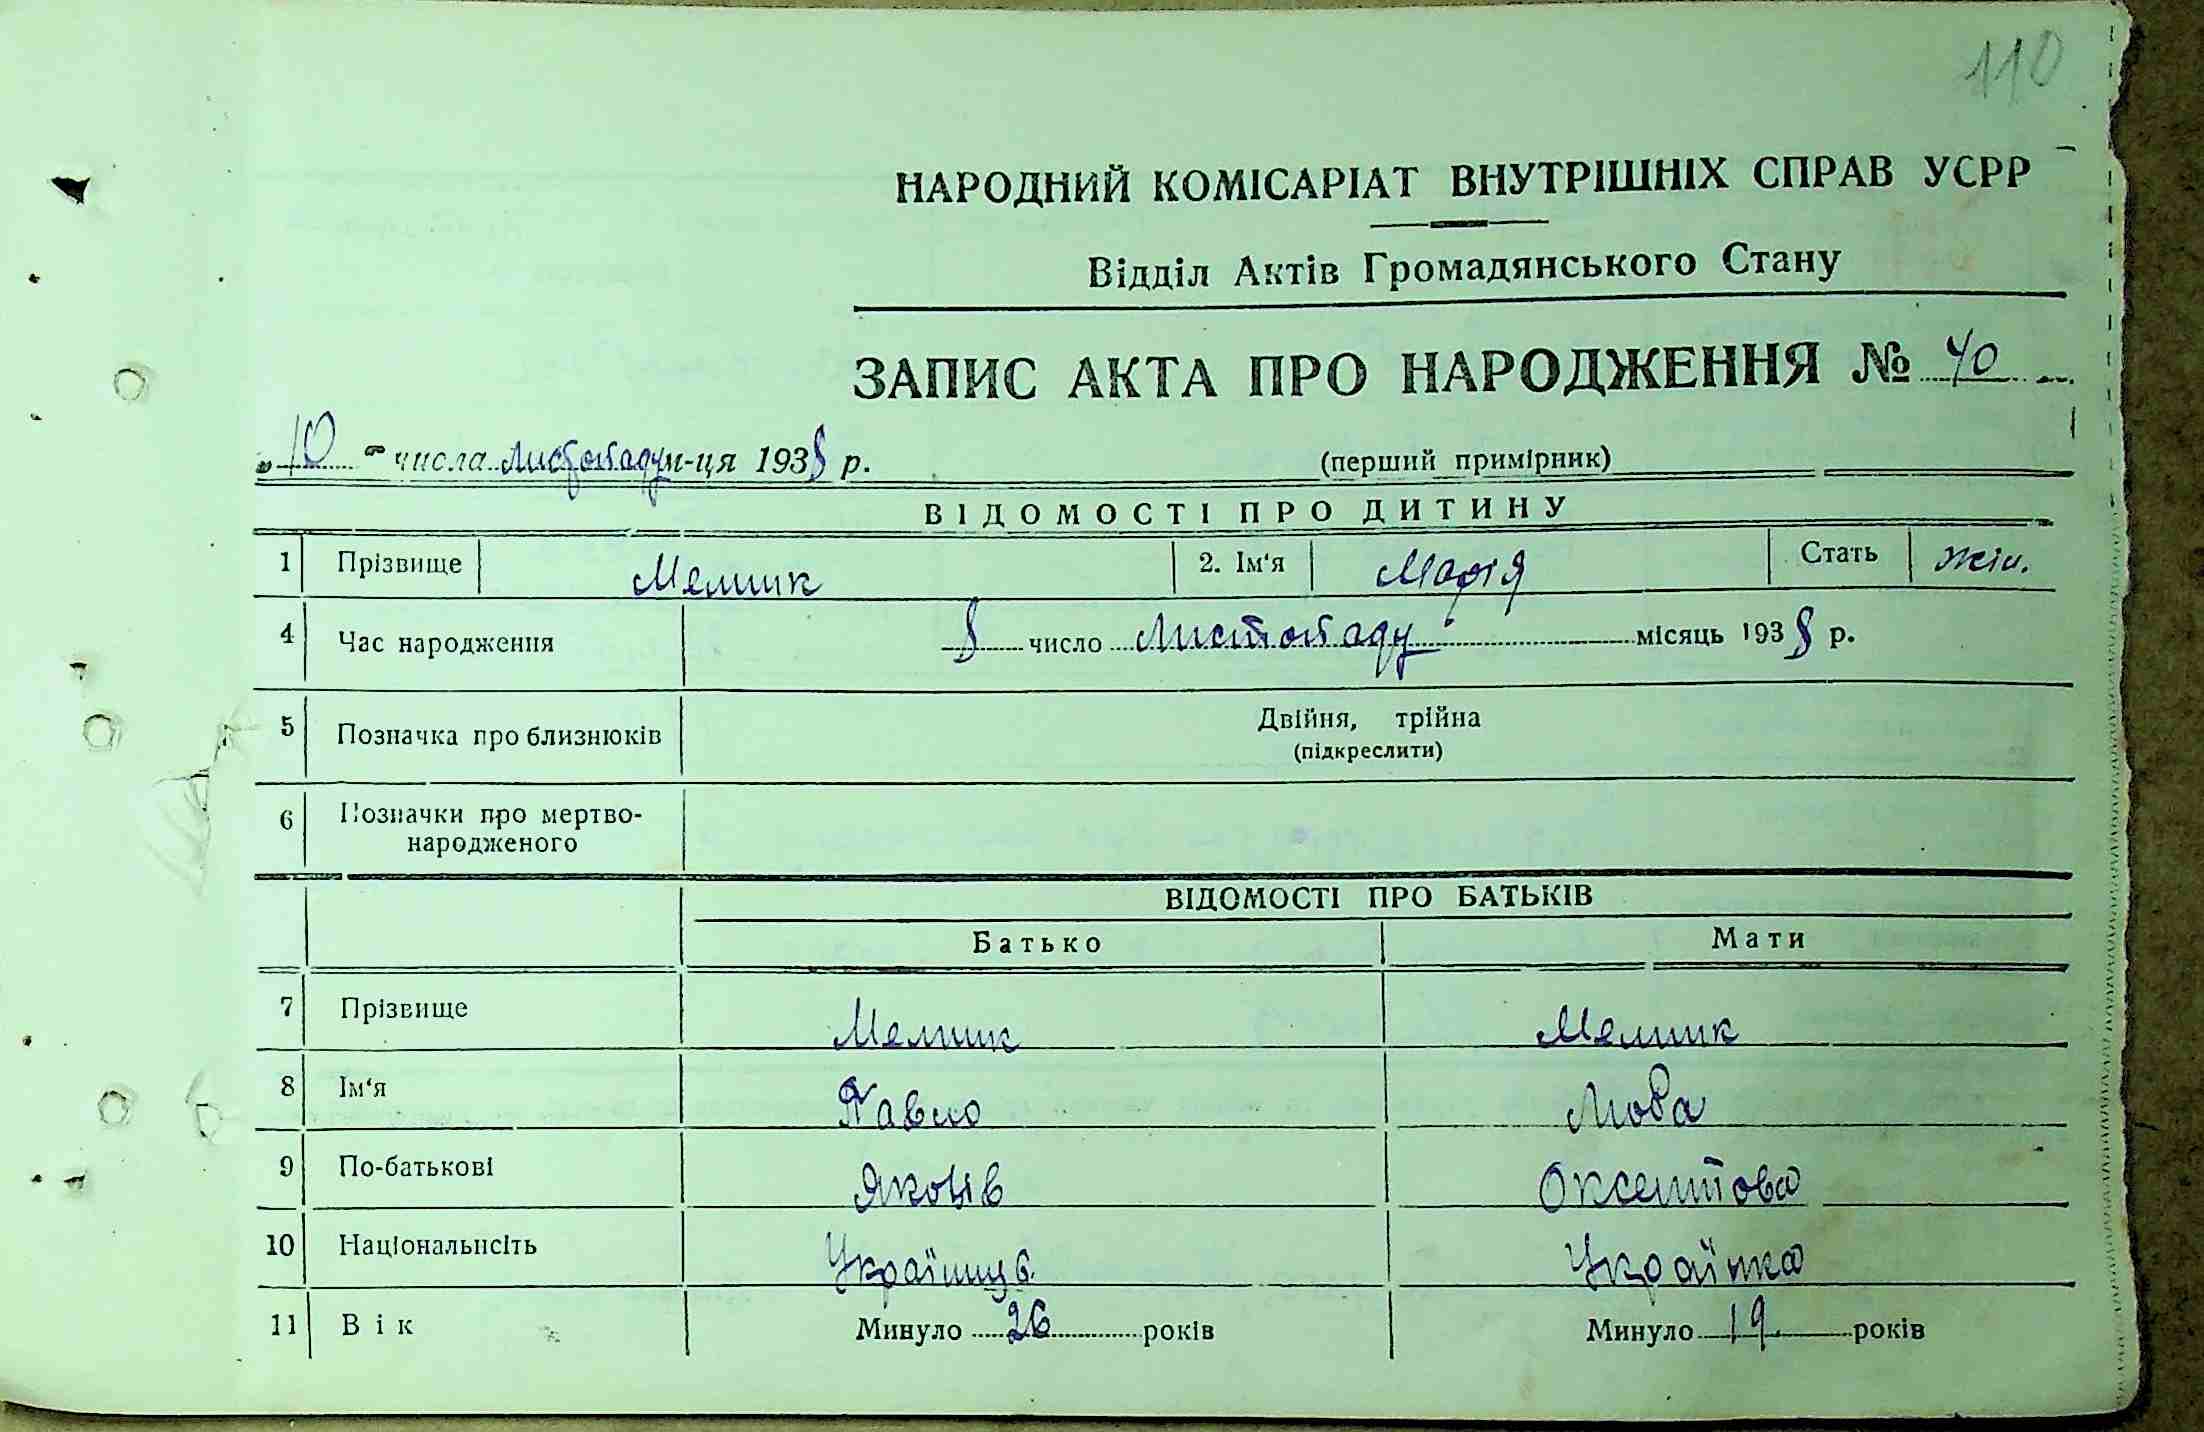 110
НАРОДНИЙ КОМІСАРІАТ ВНУТРІШНІХ СПРАВ УСРР
Відділ Актів Громадянського Стану
ЗАПИС АКТА ПРО НАРОДЖЕННЯ № 40
„10“ числа листопаду м-ця 1938 р. (перший примірник)
ВІДОМОСТІ ПРО ДИТИНУ
1 Прізвище Мельник 2. Ім'я Марія Стать жін.
4 Час народження 8 число Листопаду місяць 1938 р.
5 Позначка про близнюків Двійня, трійна
(підкреслити)
6 Позначки про мертво-
народженого
ВІДОМОСТІ ПРО БАТЬКІВ
Батько Мати
7 Прізвище Мельник Мельник
8 Ім'я Павло Люба
9 По-батькові Яковів Оксентова
10 Національнсіть Українец Українка
11 Вік Минуло 26 років Минуло 19 років